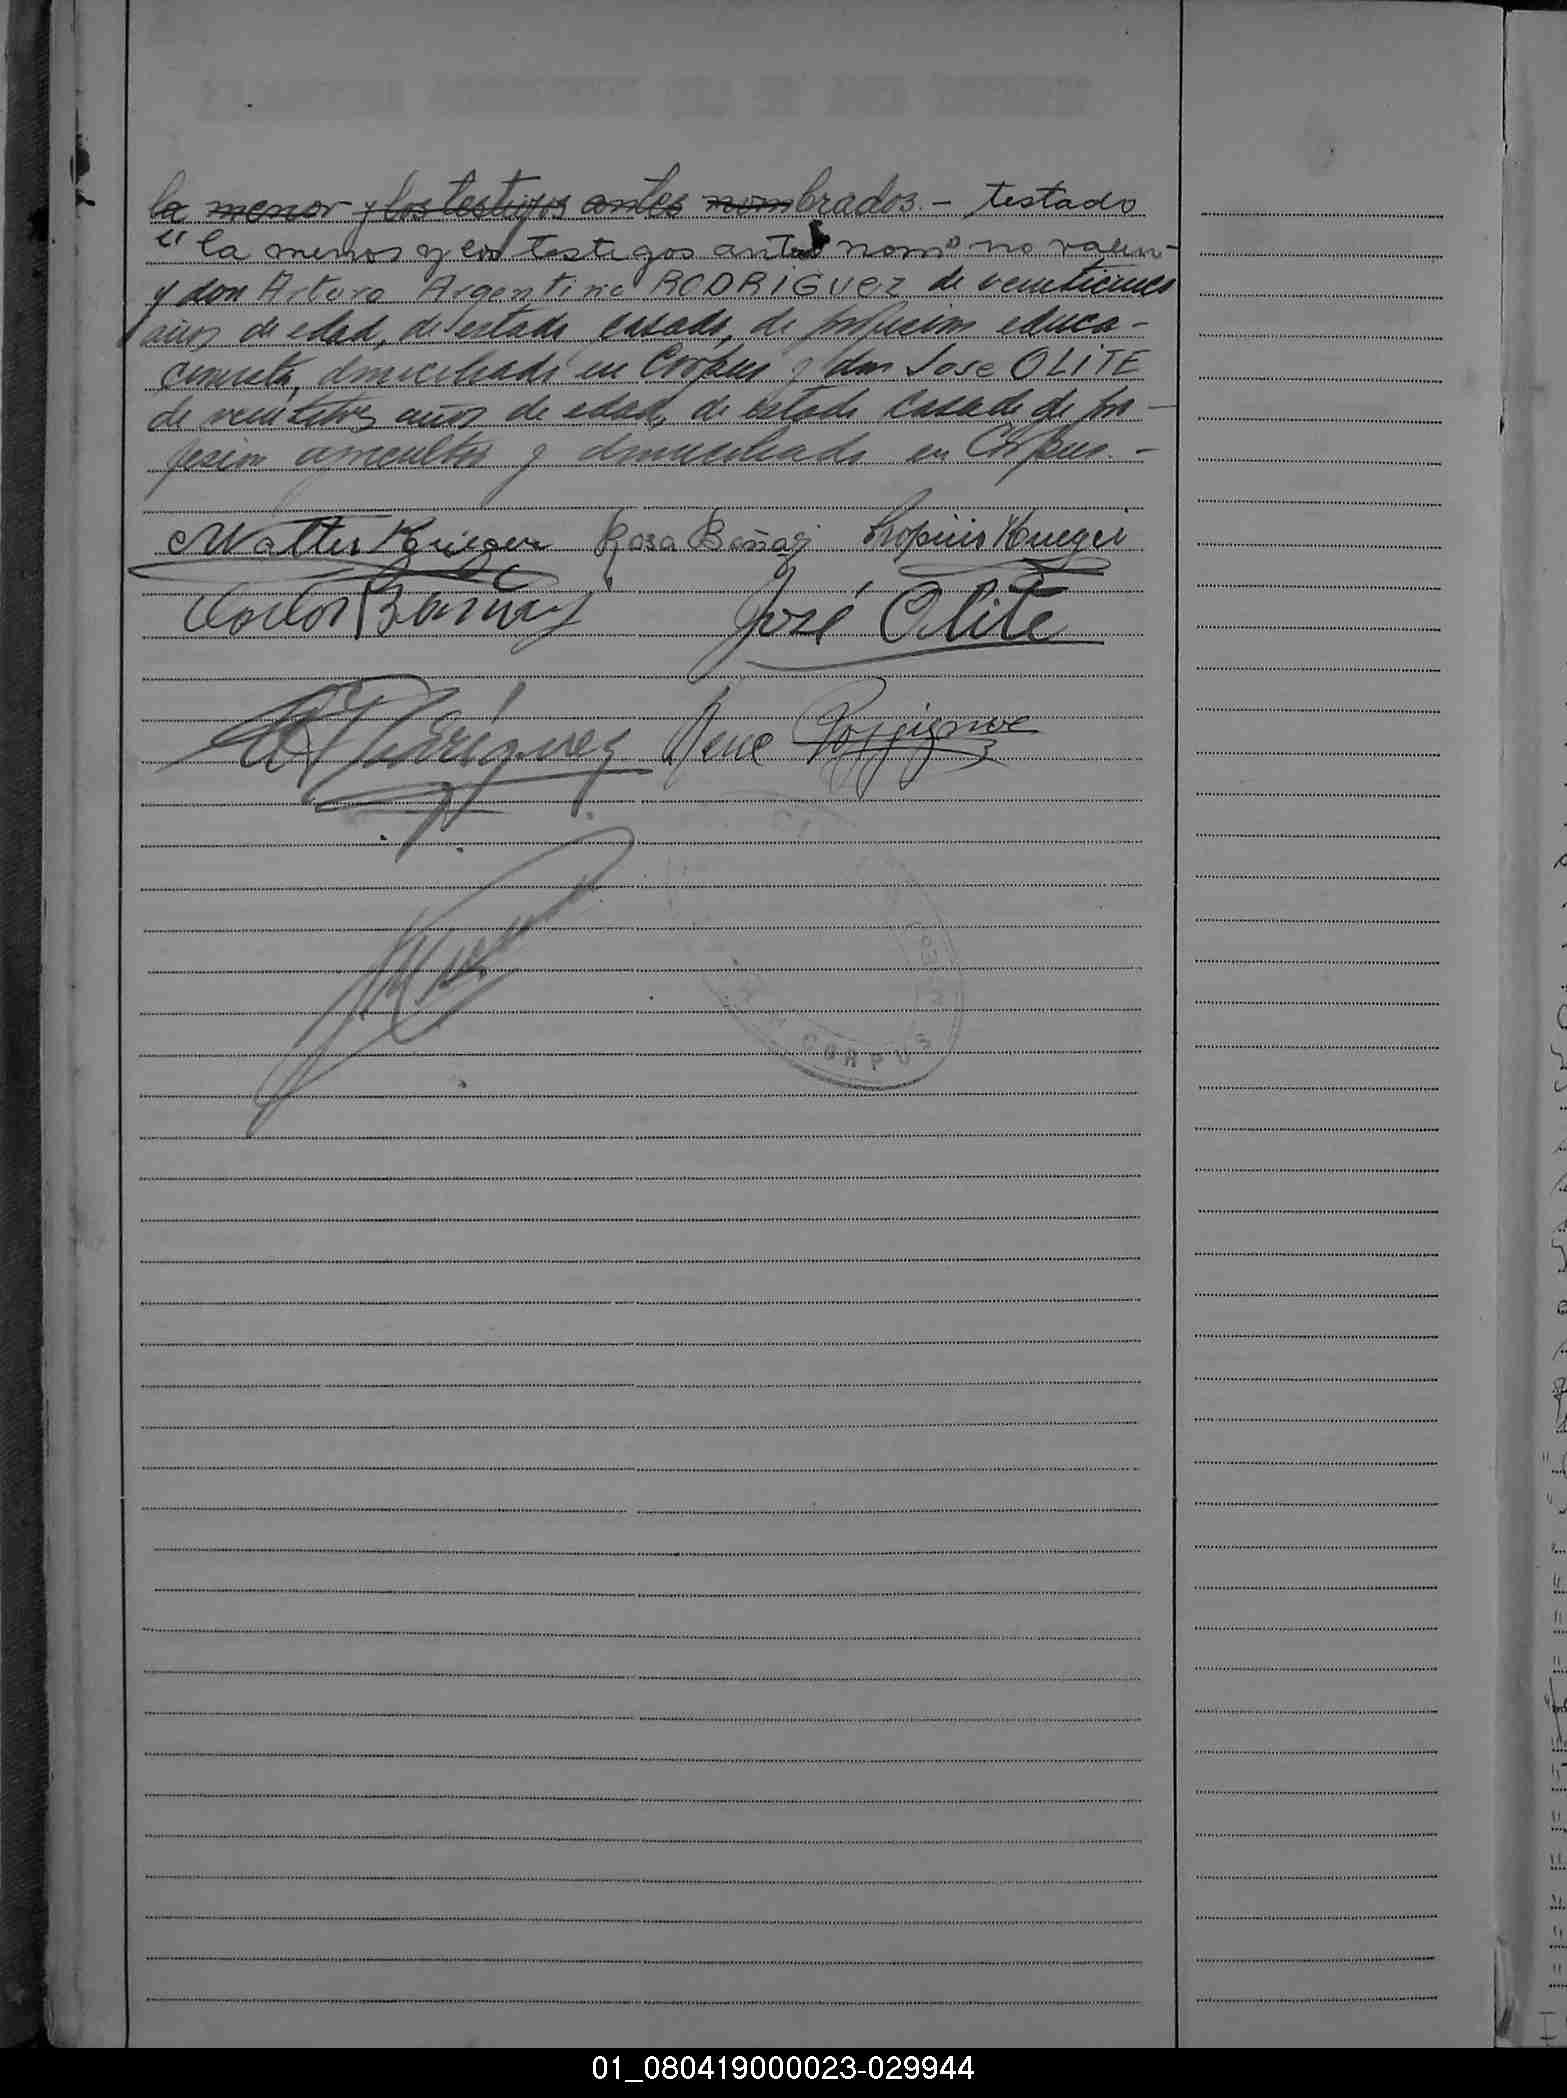 la menor y los testigos antes nombrados.- testado
"la menor y los testigos antes nom" no valen-
y don Arturo Argentino RODRIGUEZ de veinticinco
años de edad, de estado casado, de profesión educa-
cionista, domiciliado en Corpus y don Jose OLITE
de veintitres años de edad, de estado casado de pro-
fesion agricultor y domiciliado en Corpus.-
Walter Krieger Rosa Krieger
Carlos José Olite
Rodríguez Rene
CORPUS
01_080419000023-029944